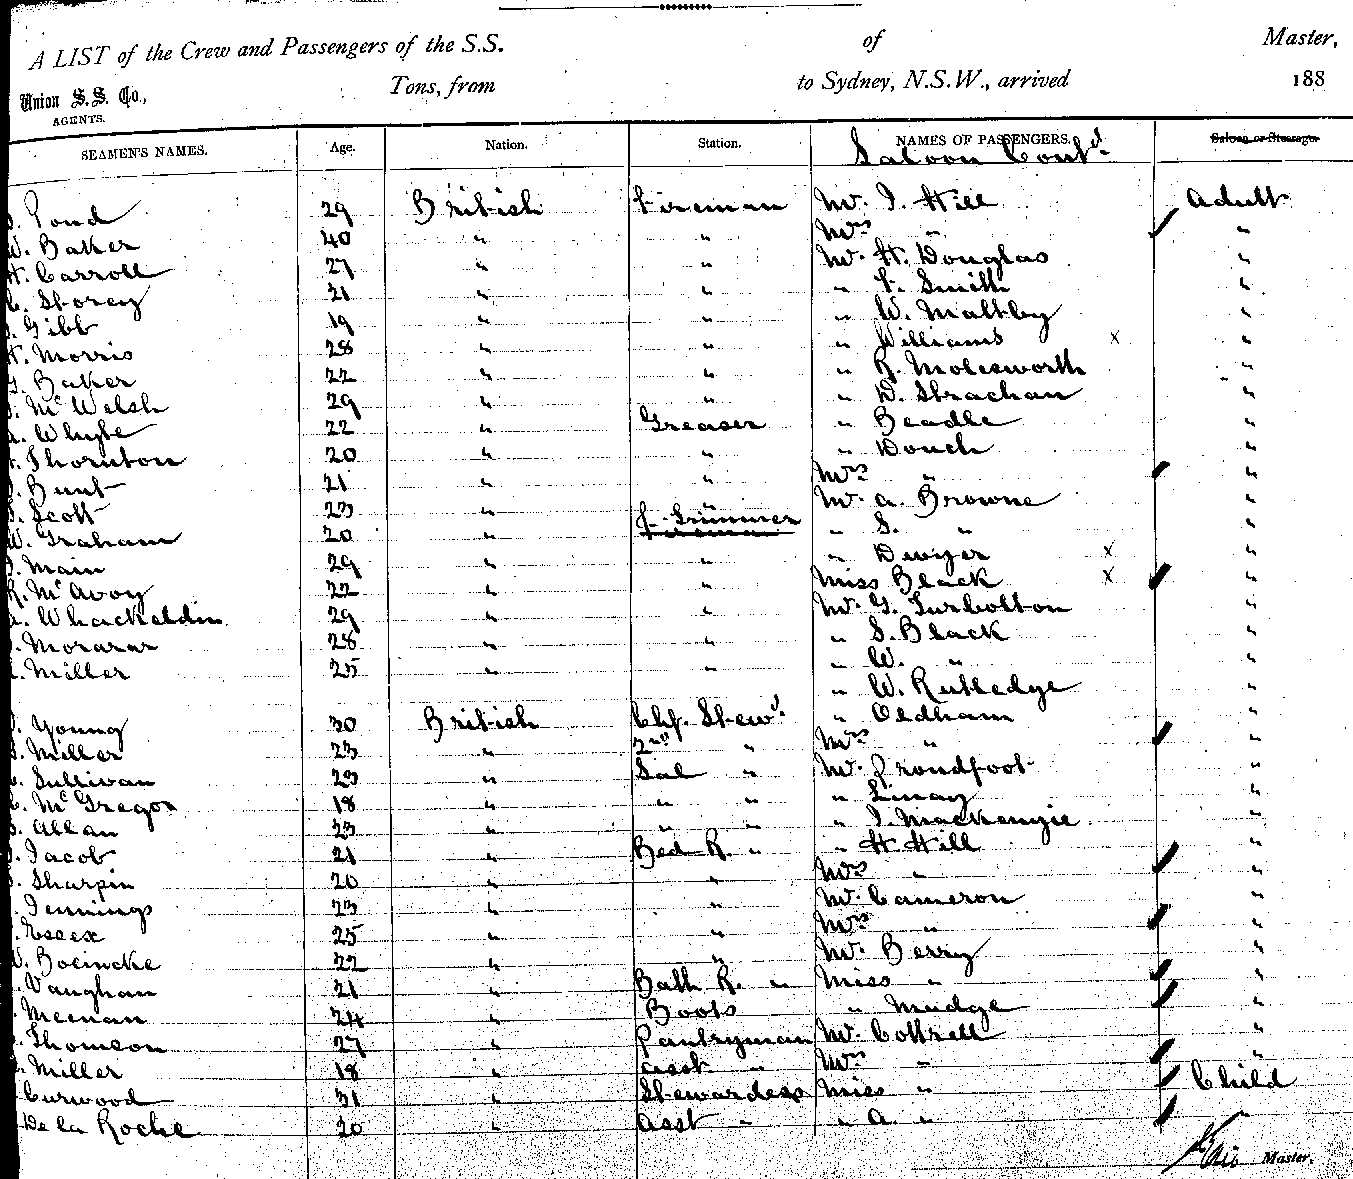 A LIST of the Crew and Passengers of the S.S. of Master,
Union S.S. Co., Tons, from to Sydney, N.S.W., arrived 188
AGENTS.
SEAMEN'S NAMES. Age. Nation. Station. NAMES OF PASSENGERS. Saloon or Steerage
Saloon Contd
Pond 29 British Fireman Mr. J. Hill Adult
W. Baker 40 " " Mrs " "
H. Carroll 27 " " Mr. H. Douglas "
C. Storey 21 " " " F. Smith "
Gibb 19 " " " W. Maltby "
H. Morris 28 " " " Williams x "
Baker 22 " " " R. Molesworth "
McWelsh 29 " " " D. Strachan "
Whyte 22 " Greaser " Beadle "
Thornton 20 " " " Douch "
Bunt 21 " " Mrs " "
Scott 23 " " Mr. A. Browne "
W. Graham 20 " Trimmer " S. " "
Main 29 " " " Dwyer x "
R. McAvoy 22 " " Miss Black x "
Whackeldin 29 " " Mr. G. Turbolton "
Morarar 28 " " " S. Black "
Miller 25 " " " W. " "
" W. Rutledge "
Young 30 British Chf. Stewd. " Oldham "
Miller 23 " 2nd " Mrs " "
Sullivan 23 " Sal " Mr. Proudfoot "
McGregor 18 " " " " Linay "
Allan 23 " " " " J. Mackenzie "
Jacob 21 " Bed R. " " H. Hill "
Sharpin 20 " " Mrs " "
Jennings 23 " " Mr. Cameron "
Essex 25 " " Mrs " "
Boeincke 22 " " Mr. Berry "
Vaughan 21 " Bath R. " Miss " "
Meenan 24 " Boots " Mudge "
Thomson 27 " Pantryman Mr. Cottrell "
Miller 18 " Asst " Mrs " "
Curwood 31 " Stewardess Miss " Child
De la Roche 20 " Asst " " A. " "
Master.